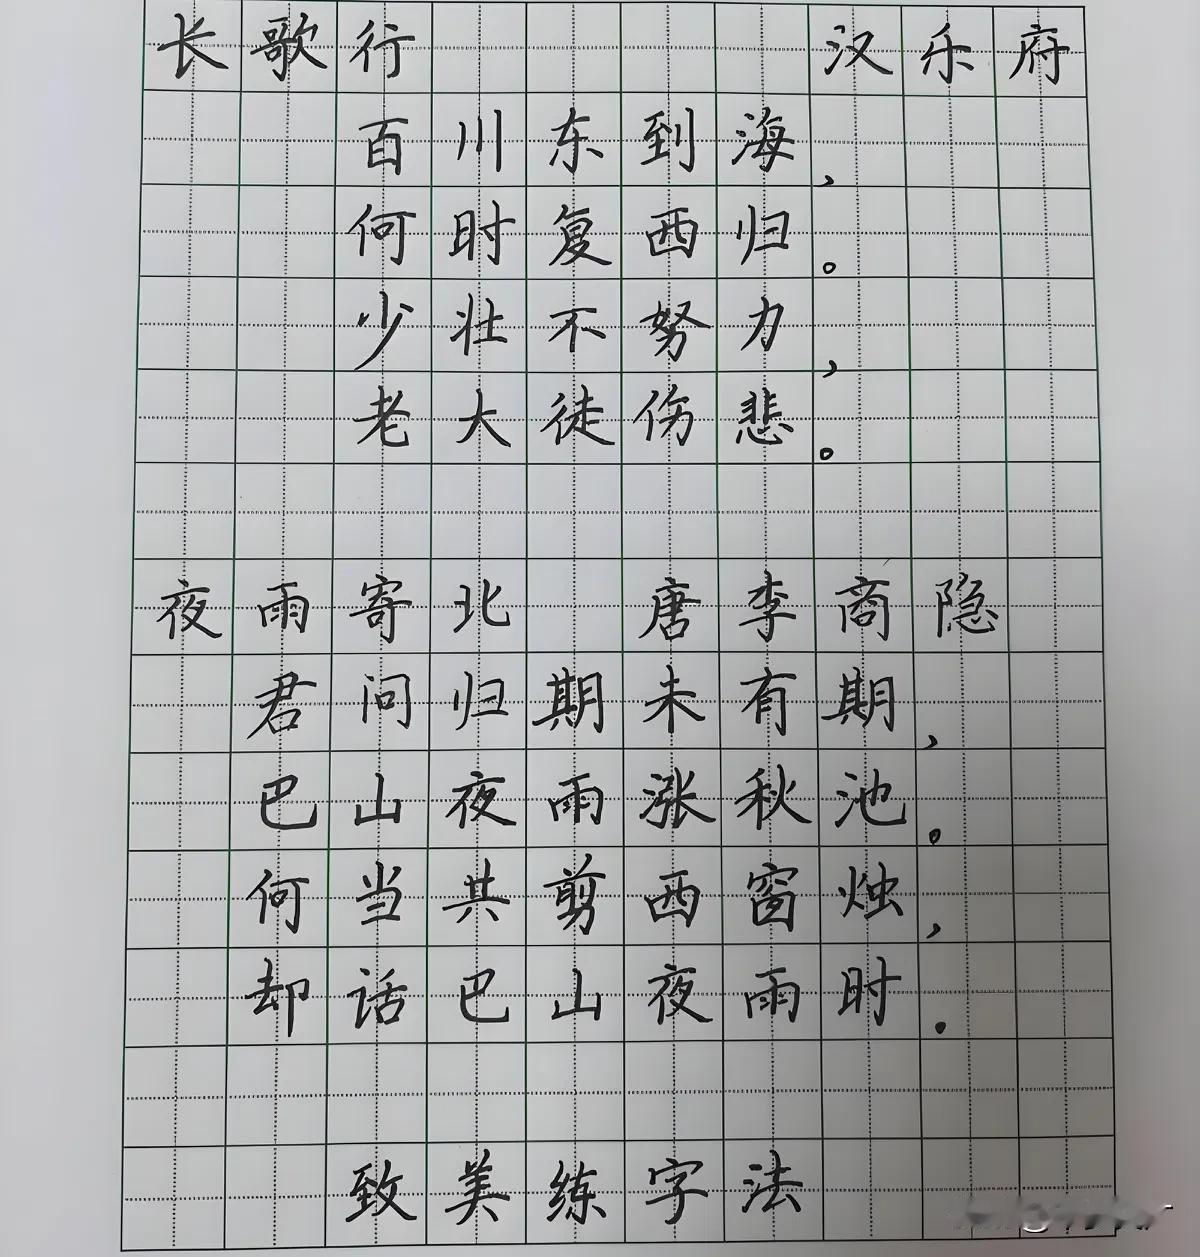 长歌行 汉乐府
百川东到海,
何时复西归。
少壮不努力,
老大徒伤悲。
夜雨寄北 唐李商隐
君问归期未有期,
巴山夜雨涨秋池。
何当共剪西窗烛,
却话巴山夜雨时.
致美练字法